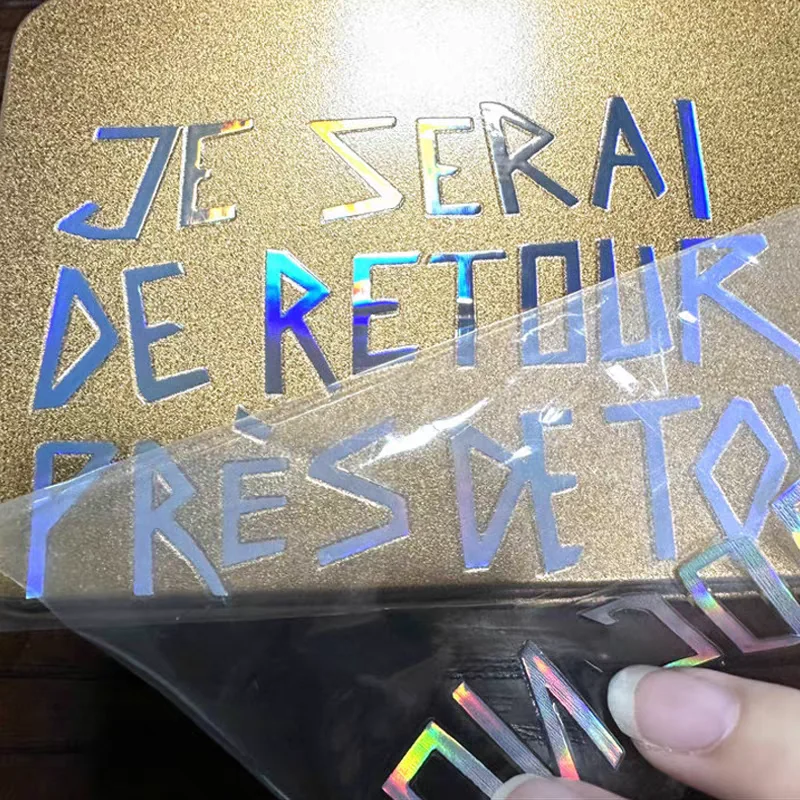 JE SERAI
DE RETOUR
PRÈS DE